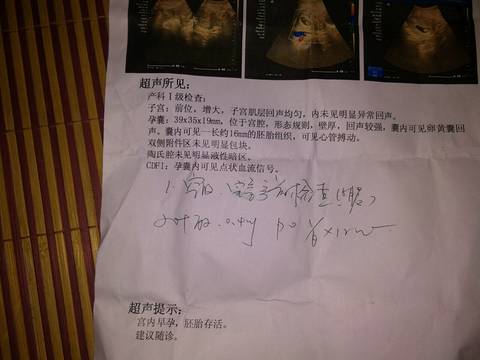 超声所见:
产科Ⅰ级检查:
子宫:前位,增大,子宫肌层回声均匀,内未见明显异常回声。
孕囊:39x35x19mm,位于宫腔,形态规则,壁厚,回声较强,囊内可见卵黄囊回
声。囊内可见一长约16mm的胚胎组织,可见心管搏动。
双侧附件区未见明显包块。
陶氏腔未见明显液性暗区。
CDFI:孕囊内可见点状血流信号。
超声提示:
宫内早孕,胚胎存活。
建议随诊。